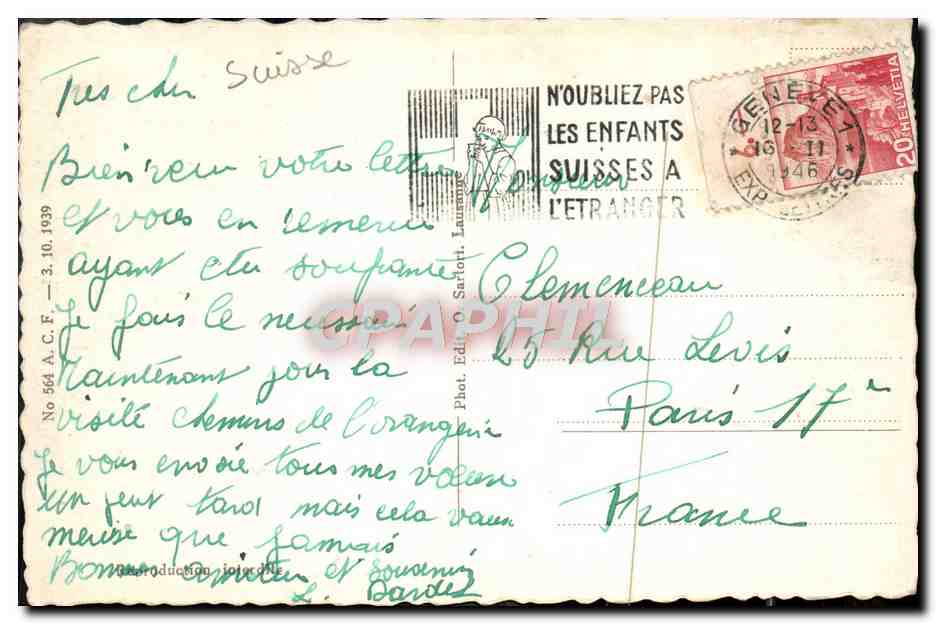 Tres cher
Suisse
Bien reçu votre lettre
et vous en remerci
ayant etu soufrante
Je fais le nessesair
Maintenant pour la
visité chemins de l'orangeri
Je vous envoie tous mes vœux
un peut tard mais cela vaux
mieuse que jamais
Bonne et Souvenir
L. Dardel
Reproduction interdite
No 564 A. C. F. — 3. 10. 1939
Phot. Edit. O. Sartori. Lausanne
N'OUBLIEZ PAS
LES ENFANTS
SUISSES A
L'ETRANGER
GENÈVE 1
12-13
16 II
1946
EXP. LETTRES
20 HELVETIA
Monsieur
Clemenceau
25 Rue Levis
Paris 17e
France
CPAPHIL